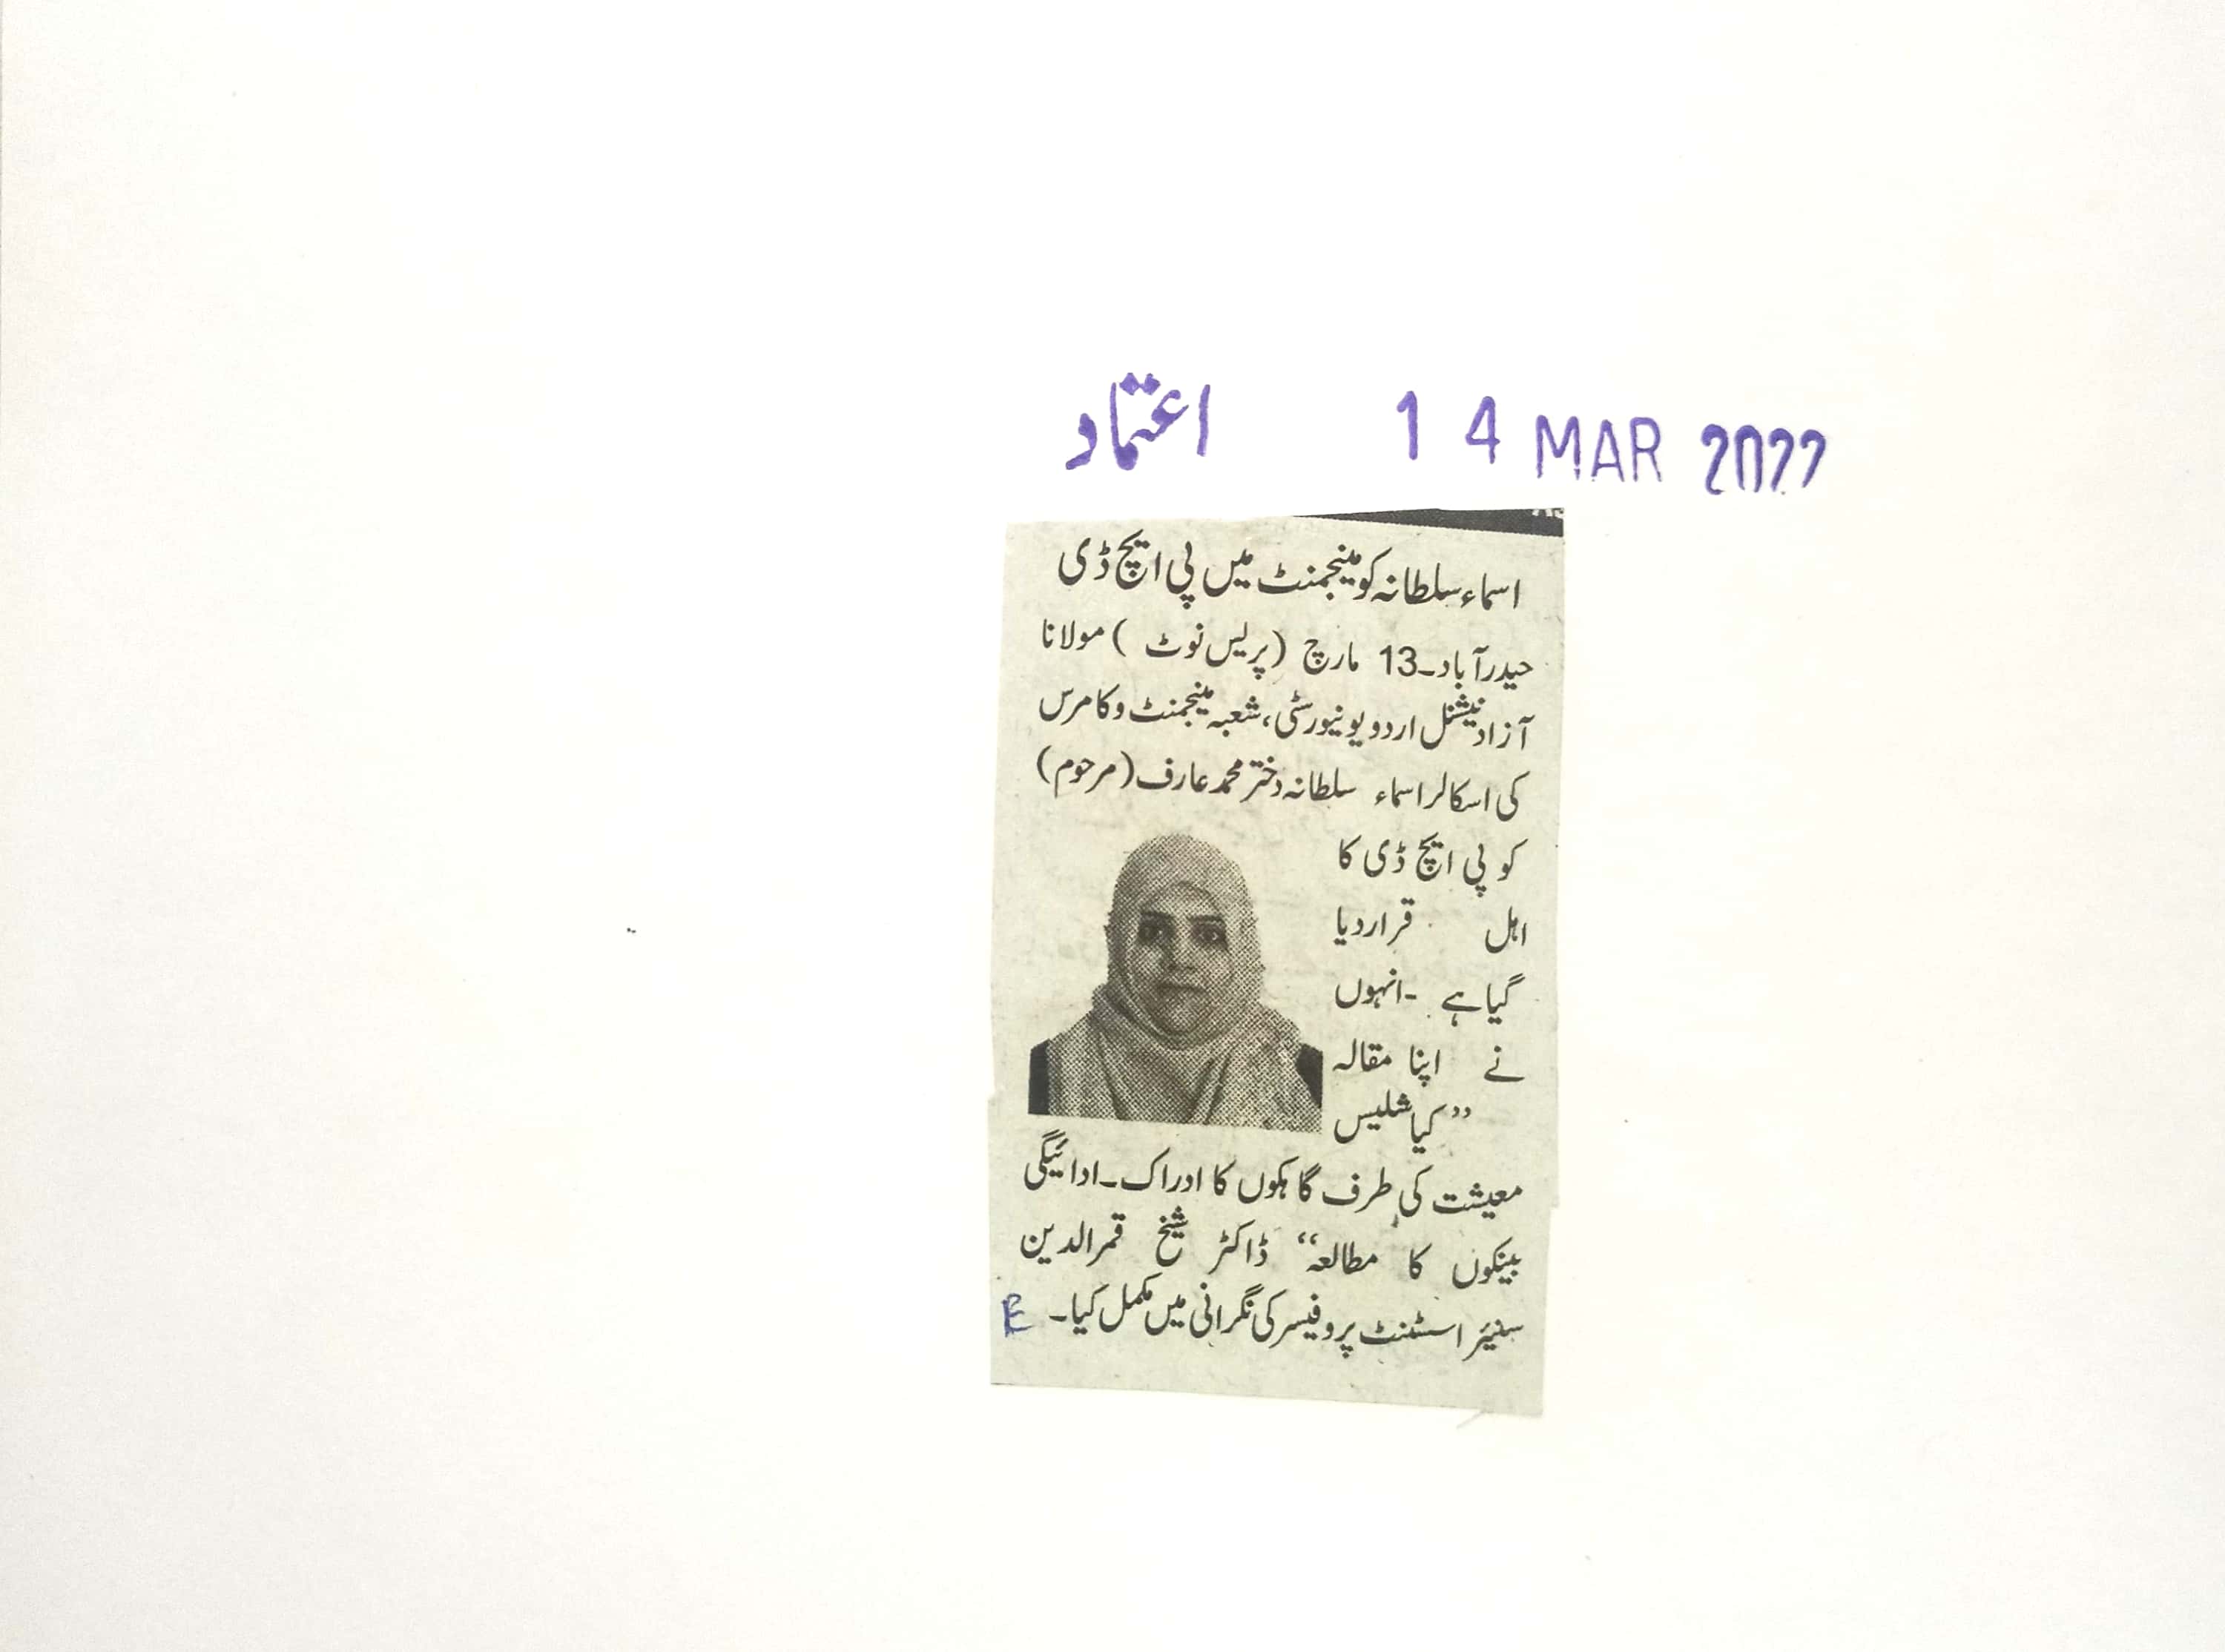 اعتماد 14 MAR 2022
اسماء سلطانہ کو مینجمنٹ میں پی ایچ ڈی
حیدرآباد۔13 مارچ (پریس نوٹ) مولانا
آزاد نیشنل اردو یونیورسٹی، شعبہ مینجمنٹ و کامرس
کی اسکالر اسماء سلطانہ دختر محمد عارف (مرحوم)
کو پی ایچ ڈی کا
اہل قرار دیا
گیا ہے ۔انہوں
نے اپنا مقالہ
”کیاشلیس
معیشت کی طرف گاہکوں کا ادراک۔ادائیگی
بینکوں کا مطالعہ“ ڈاکٹر شیخ قمرالدین
سنیئر اسسٹنٹ پروفیسر کی نگرانی میں مکمل کیا۔